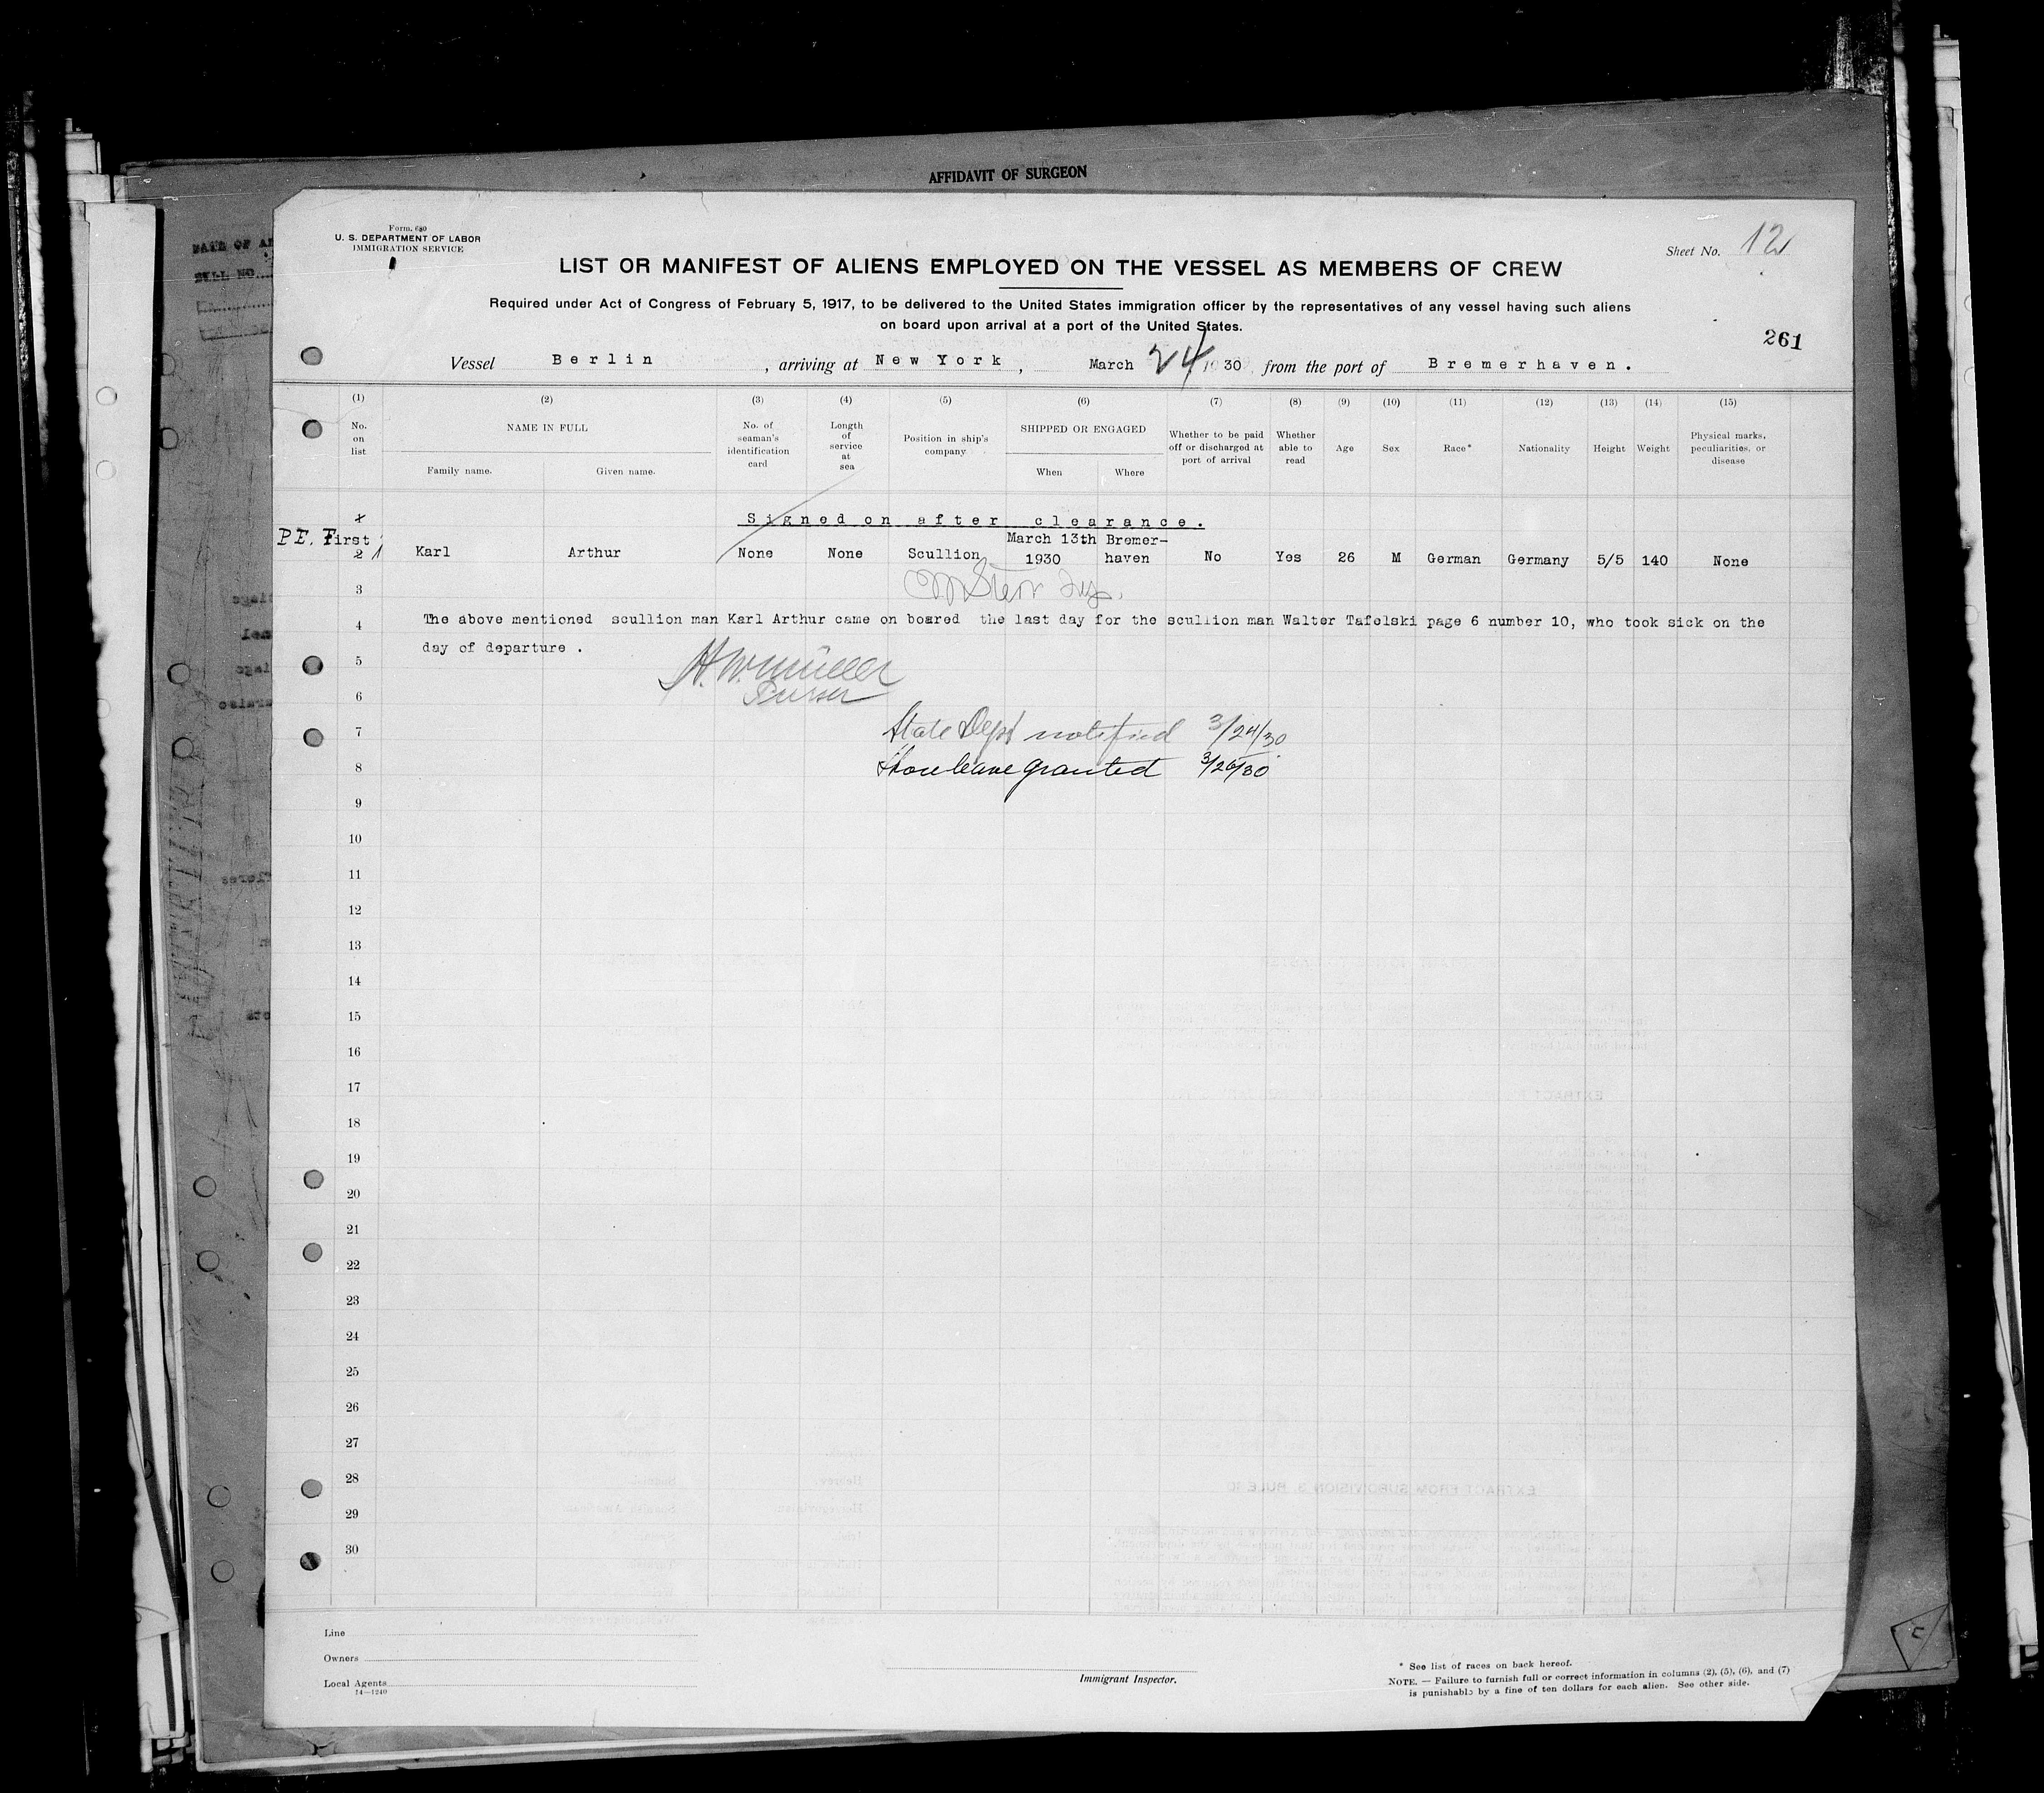 AFFIDAVIT OF SURGEON
Form. 680
U. S. DEPARTMENT OF LABOR
IMMIGRATION SERVICE
Sheet No. 12
LIST OR MANIFEST OF ALIENS EMPLOYED ON THE VESSEL AS MEMBERS OF CREW
Required under Act of Congress of February 5, 1917, to be delivered to the United States immigration officer by the representatives of any vessel having such aliens
on board upon arrival at a port of the United States.
261
Vessel Berlin, arriving at New York, March 24 1930, from the port of Bremerhaven.
(1) (2) (3) (4) (5) (6) (7) (8) (9) (10) (11) (12) (13) (14) (15)
No. on list
NAME IN FULL
Family name. Given name.
No. of seaman's identification card
Length of service at sea
Position in ship's company
SHIPPED OR ENGAGED
When Where
Whether to be paid off or discharged at port of arrival
Whether able to read
Age
Sex
Race*
Nationality
Height
Weight
Physical marks, peculiarities, or disease
Signed on after clearance.
P.E. First
2 1 Karl Arthur None None Scullion March 13th 1930 Bremer-haven No Yes 26 M German Germany 5/5 140 None
3
4 The above mentioned scullion man Karl Arthur came on boared the last day for the scullion man Walter Tafelski page 6 number 10, who took sick on the
day of departure .
5 H. W. Müller
6 Purser
7 State Dept notified 3/24/30
8 Shore leave granted 3/26/30
9
10
11
12
13
14
15
16
17
18
19
20
21
22
23
24
25
26
27
28
29
30
Line
Owners
Local Agents
14—1240
Immigrant Inspector.
* See list of races on back hereof.
NOTE. — Failure to furnish full or correct information in columns (2), (5), (6), and (7)
is punishable by a fine of ten dollars for each alien. See other side.